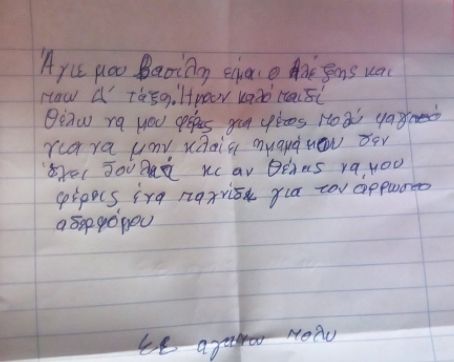 Άγιε μου Βασίλη είμαι ο Αλέξης και
παω Δ' τάξη. Ήμουν καλό παιδί
Θέλω να μου φέρεις για φέτος πολύ φαγητό
για να μην κλαίει ημαμάμου δεν
έχει δουλειά κι αν θέλεις να μου
φέρεις ένα παιχνίδι για τον άρρωστο
αδερφόμου
σε αγαπαω πολυ